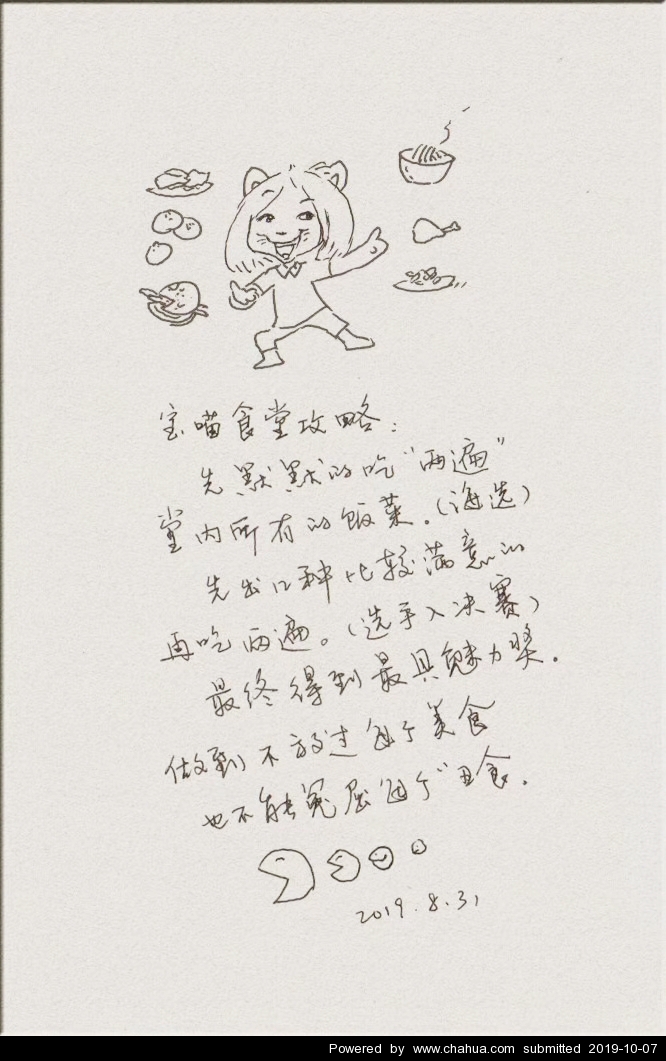 宝喵食堂攻略：
先默默的吃“两遍”
堂内所有的饭菜.（海选）
先出12种比较满意的
再吃两遍。（选手入决赛）
最终得到最具魅力奖.
做到不放过每个美食
也不能冤屈每个“丑食.
2019.8.31
Powered by www.chahua.com submitted 2019-10-07